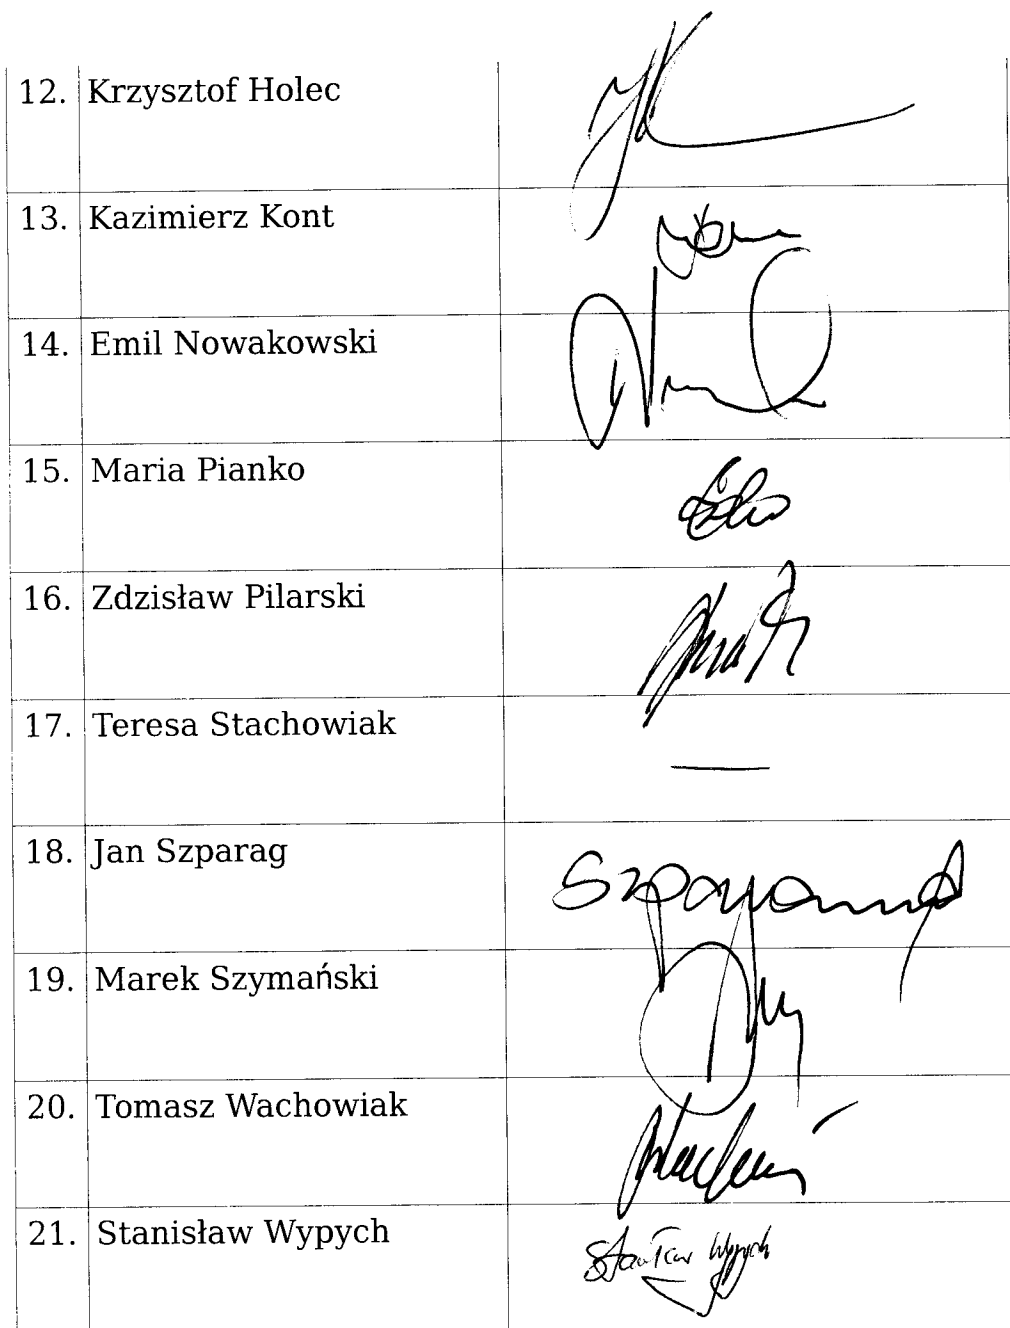 12. Krzysztof Holec
13. Kazimierz Kont
14. Emil Nowakowski
15. Maria Pianko
16. Zdzisław Pilarski
17. Teresa Stachowiak —
18. Jan Szparag Szparag
19. Marek Szymański
20. Tomasz Wachowiak
21. Stanisław Wypych Stanisław Wypych